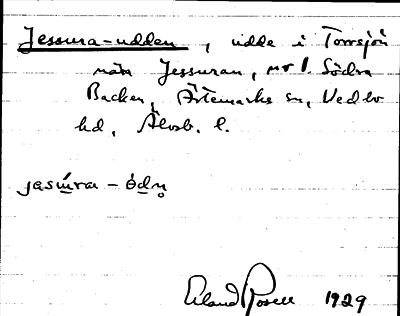 Jessura-udden, udde i Torrsjön
nära Jessuran, nr 1 Södra
Backen, Ärtemarks sn, Vedbo
hd, Älvsb. l.
Erland Rosell 1929